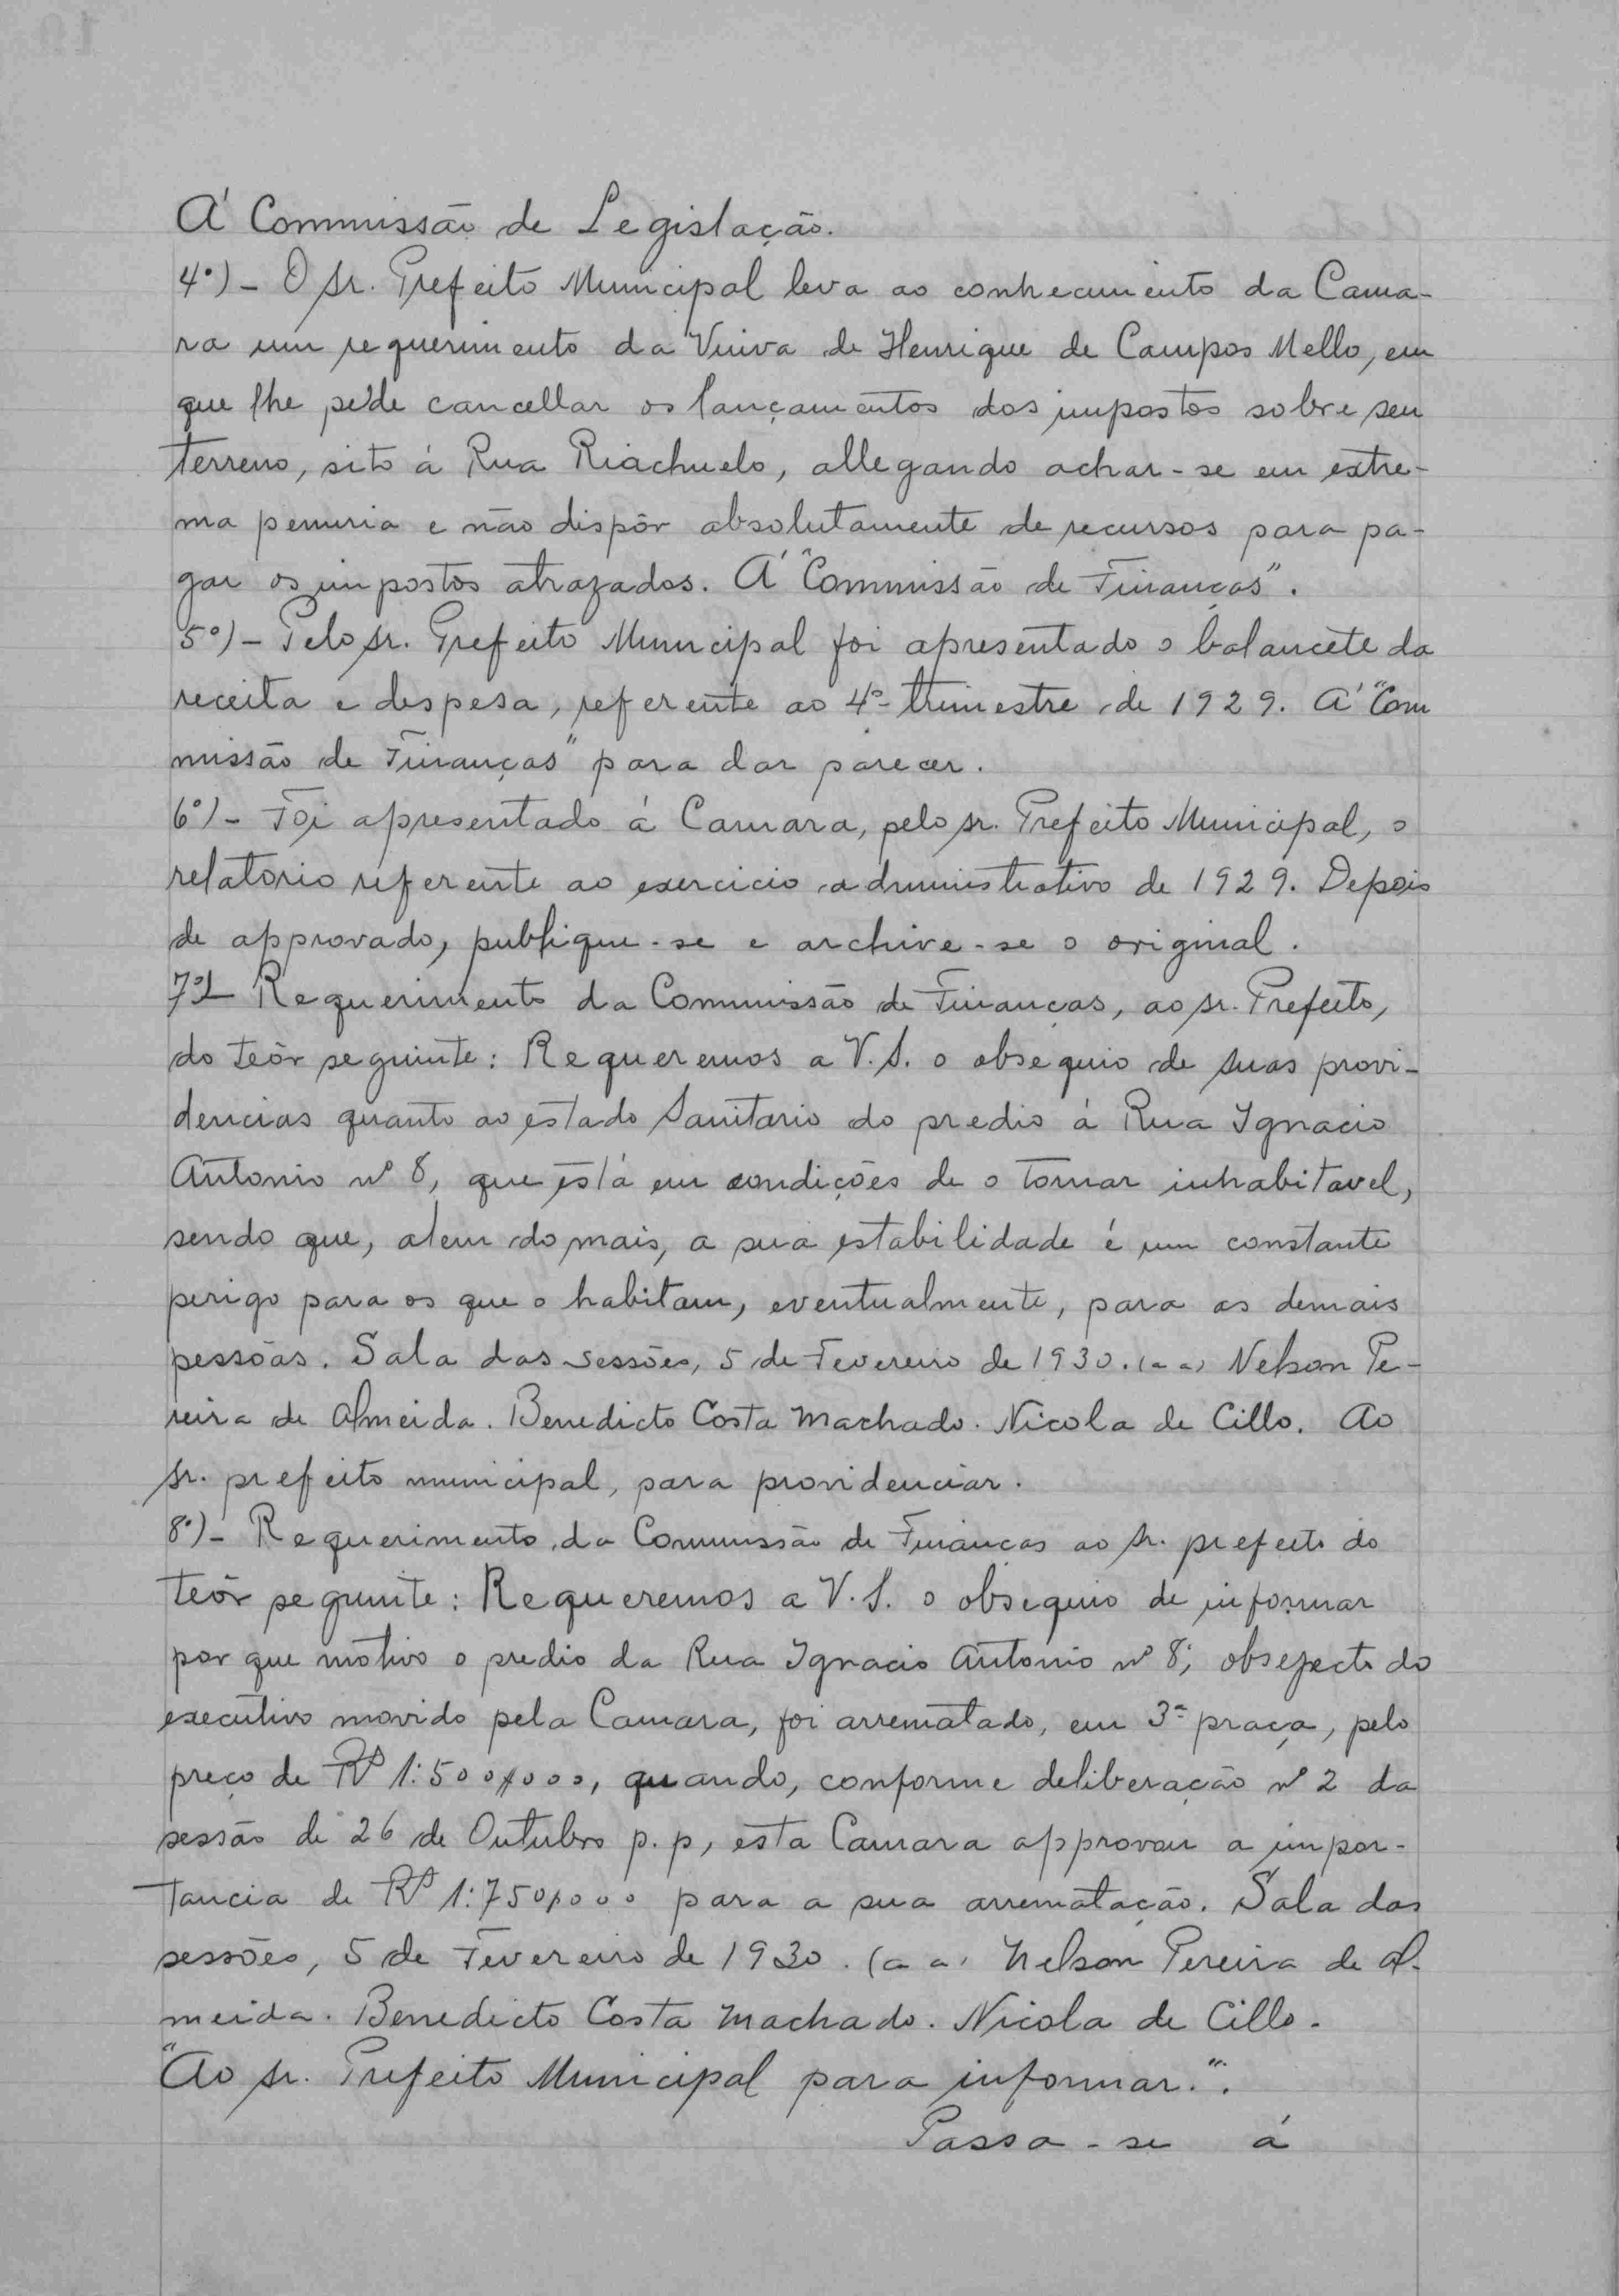 Á Commissão de Legislação.
4º) - O sr. Prefeito Municipal leva ao conhecimento da Cama-
ra um requerimento da Viuva de Henrique de Campos Mello, em
que lhe péde cancellar os lançamentos dos impostos sobre seu
terreno, sito á Rua Riachuelo, allegando achar-se em extre-
ma penuria e não dispôr absolutamente de recursos para pa-
gar os impostos atrazados. Á "Commissão de Finanças".
5º) - Pelo sr. Prefeito Municipal foi apresentado o balancete da
receita e despesa, referente ao 4º trimestre de 1929. Á "Com
missão de Finanças" para dar parecer.
6º) - Foi apresentado á Camara, pelo sr. Prefeito Municipal, o
relatorio referente ao exercicio administrativo de 1929. Depois
de approvado, publique-se e archive-se o original.
7º) - Requerimento da Commissão de Finanças, ao sr. Prefeito,
do teôr seguinte: Requeremos a V.S. o obsequio de suas provi-
dencias quanto ao estado Sanitario do predio á Rua Ignacio
Antonio nº 8, que está em condições de o tornar inhabitavel,
sendo que, alem do mais, a sua estabilidade é um constante
perigo para os que o habitam, eventualmente, para as demais
pessôas. Sala das sessões, 5 de Fevereiro de 1930. (a a) Nelson Pe-
reira de Almeida. Benedicto Costa Machado. Nicola de Cillo. Ao
sr. prefeito municipal, para providenciar.
8º) - Requerimento da Commissão de Finanças ao sr. prefeito do
teôr seguinte: Requeremos a V.S. o obsequio de informar
por que motivo o predio da Rua Ignacio Antonio nº 8, obsejecto do
executivo movido pela Camara, foi arrematado, em 3ª praça, pelo
preço de R$ 1:500$000, quando, conforme deliberação nº 2 da
sessão de 26 de Outubro p.p, esta Camara approvou a impor-
tancia de R$ 1:750$000 para a sua arrematação. Sala das
sessões, 5 de Fevereiro de 1930. (a a) Nelson Pereira de Al-
meida. Benedicto Costa Machado. Nicola de Cillo.
"Ao sr. Prefeito Municipal para informar.".
Passa-se á